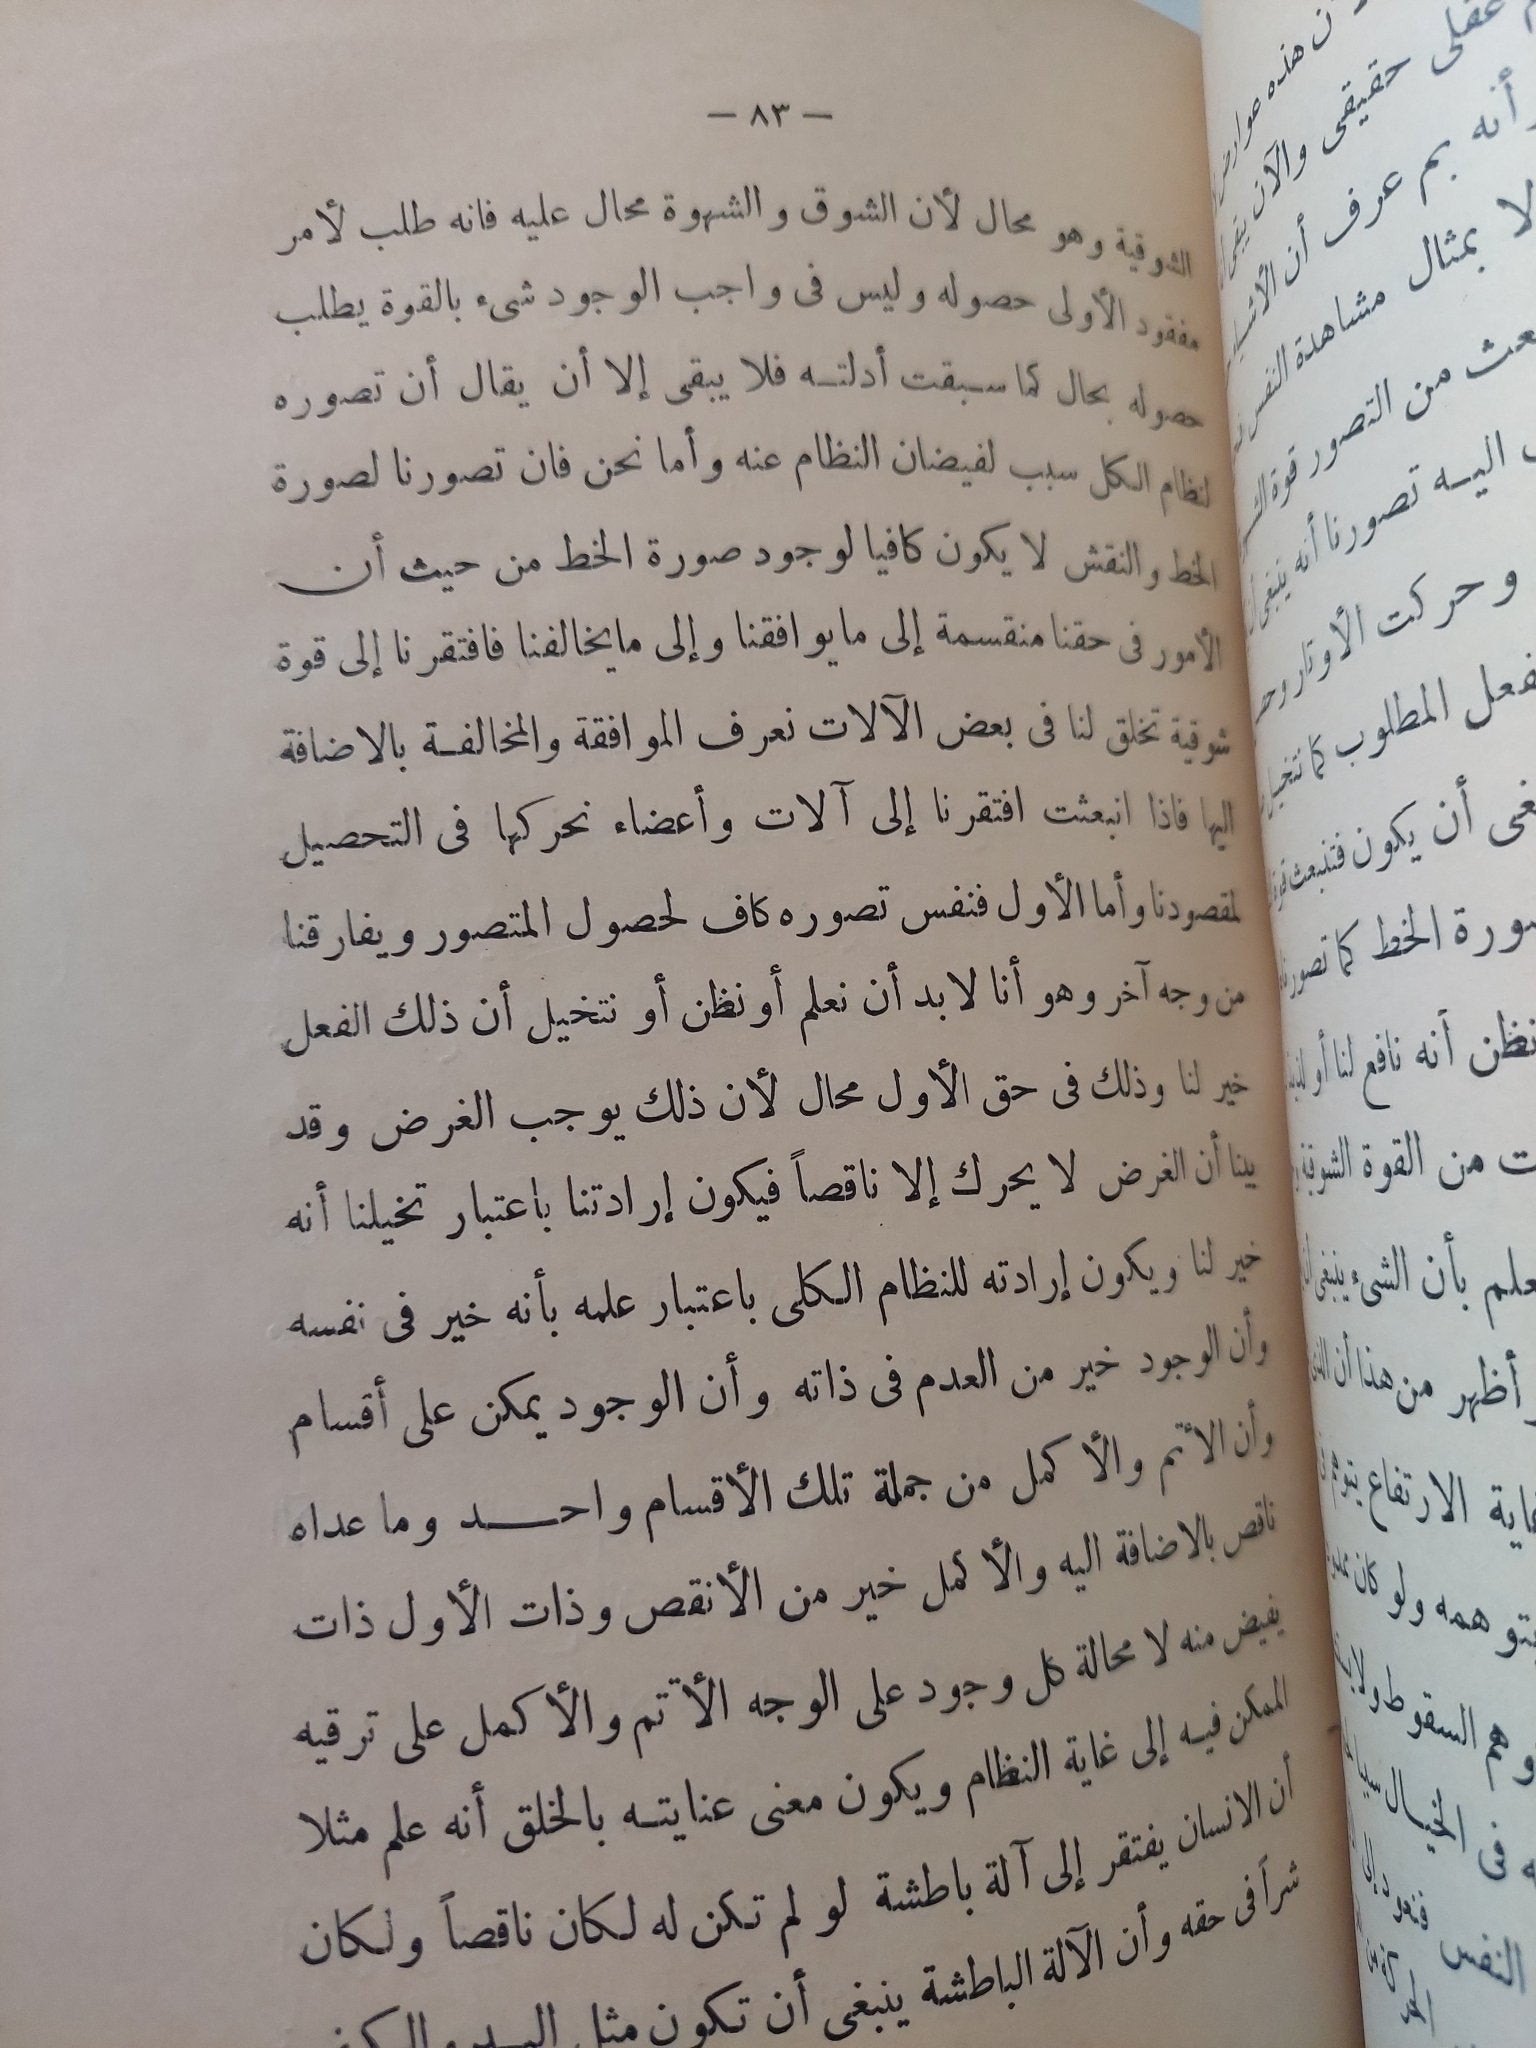 — ٨٣ —
الشوقية وهو محال لأن الشوق والشهوة محال عليه فانه طلب لأمر
مفقود الأولى حصوله وليس فى واجب الوجود شىء بالقوة يطلب
حصوله بحال كما سبقت أدلته فلا يبقى إلا أن يقال أن تصوره
لنظام الكل سبب لفيضان النظام عنه وأما نحن فان تصورنا لصورة
الخط والنقش لا يكون كافيا لوجود صورة الخط من حيث أن
الأمور فى حقنا منقسمة إلى ما يوافقنا وإلى ما يخالفنا فافتقرنا إلى قوة
شوقية تخلق لنا فى بعض الآلات نعرف الموافقة والمخالفة بالاضافة
اليها فاذا انبعثت افتقرنا إلى آلات وأعضاء نحركها فى التحصيل
لمقصودنا وأما الأول فنفس تصوره كاف لحصول المتصور ويفارقنا
من وجه آخر وهو أنا لا بد أن نعلم أو نظن أو نتخيل أن ذلك الفعل
خير لنا وذلك فى حق الأول محال لأن ذلك يوجب الغرض وقد
بينا أن الغرض لا يحرك إلا ناقصاً فيكون إرادتنا باعتبار تخيلنا أنه
خير لنا ويكون إرادته للنظام الكلى باعتبار علمه بأنه خير فى نفسه
وأن الوجود خير من العدم فى ذاته وأن الوجود يمكن على أقسام
وأن الأتم والأكمل من جملة تلك الأقسام واحد وما عداه
ناقص بالاضافة اليه والأكمل خير من الأنقص وذات الأول ذات
يفيض منه لا محالة كل وجود على الوجه الأتم والأكمل على ترقيه
الممكن فيه إلى غاية النظام ويكون معنى عنايته بالخلق أنه علم مثلا
أن الانسان يفتقر إلى آلة باطشة لو لم تكن له لكان ناقصاً ولكان
شراً فى حقه وأن الآلة الباطشة ينبغى أن تكون مثل اليد والكف
ن هذه عوارض
عقلى حقيقى والآن يبقى
وأنه بم عرف أن الأشياء
لا بمثال مشاهدة النفس
من التصور قوة
اليه تصورنا أنه ينبغى
وحركت الأوتار
المطلوب كما نتخيل
أن يكون فتنبعث قوة
صورة الخط كما تصورنا
نظن أنه نافع لنا أو لذيذ
من القوة الشوقية
بأن الشىء ينبغى
أظهر من هذا أن الذى
غاية الارتفاع يتوهم
يتوهمه ولو كان
السقوط ولا
فى الخيال
فنعود إلى
النفس